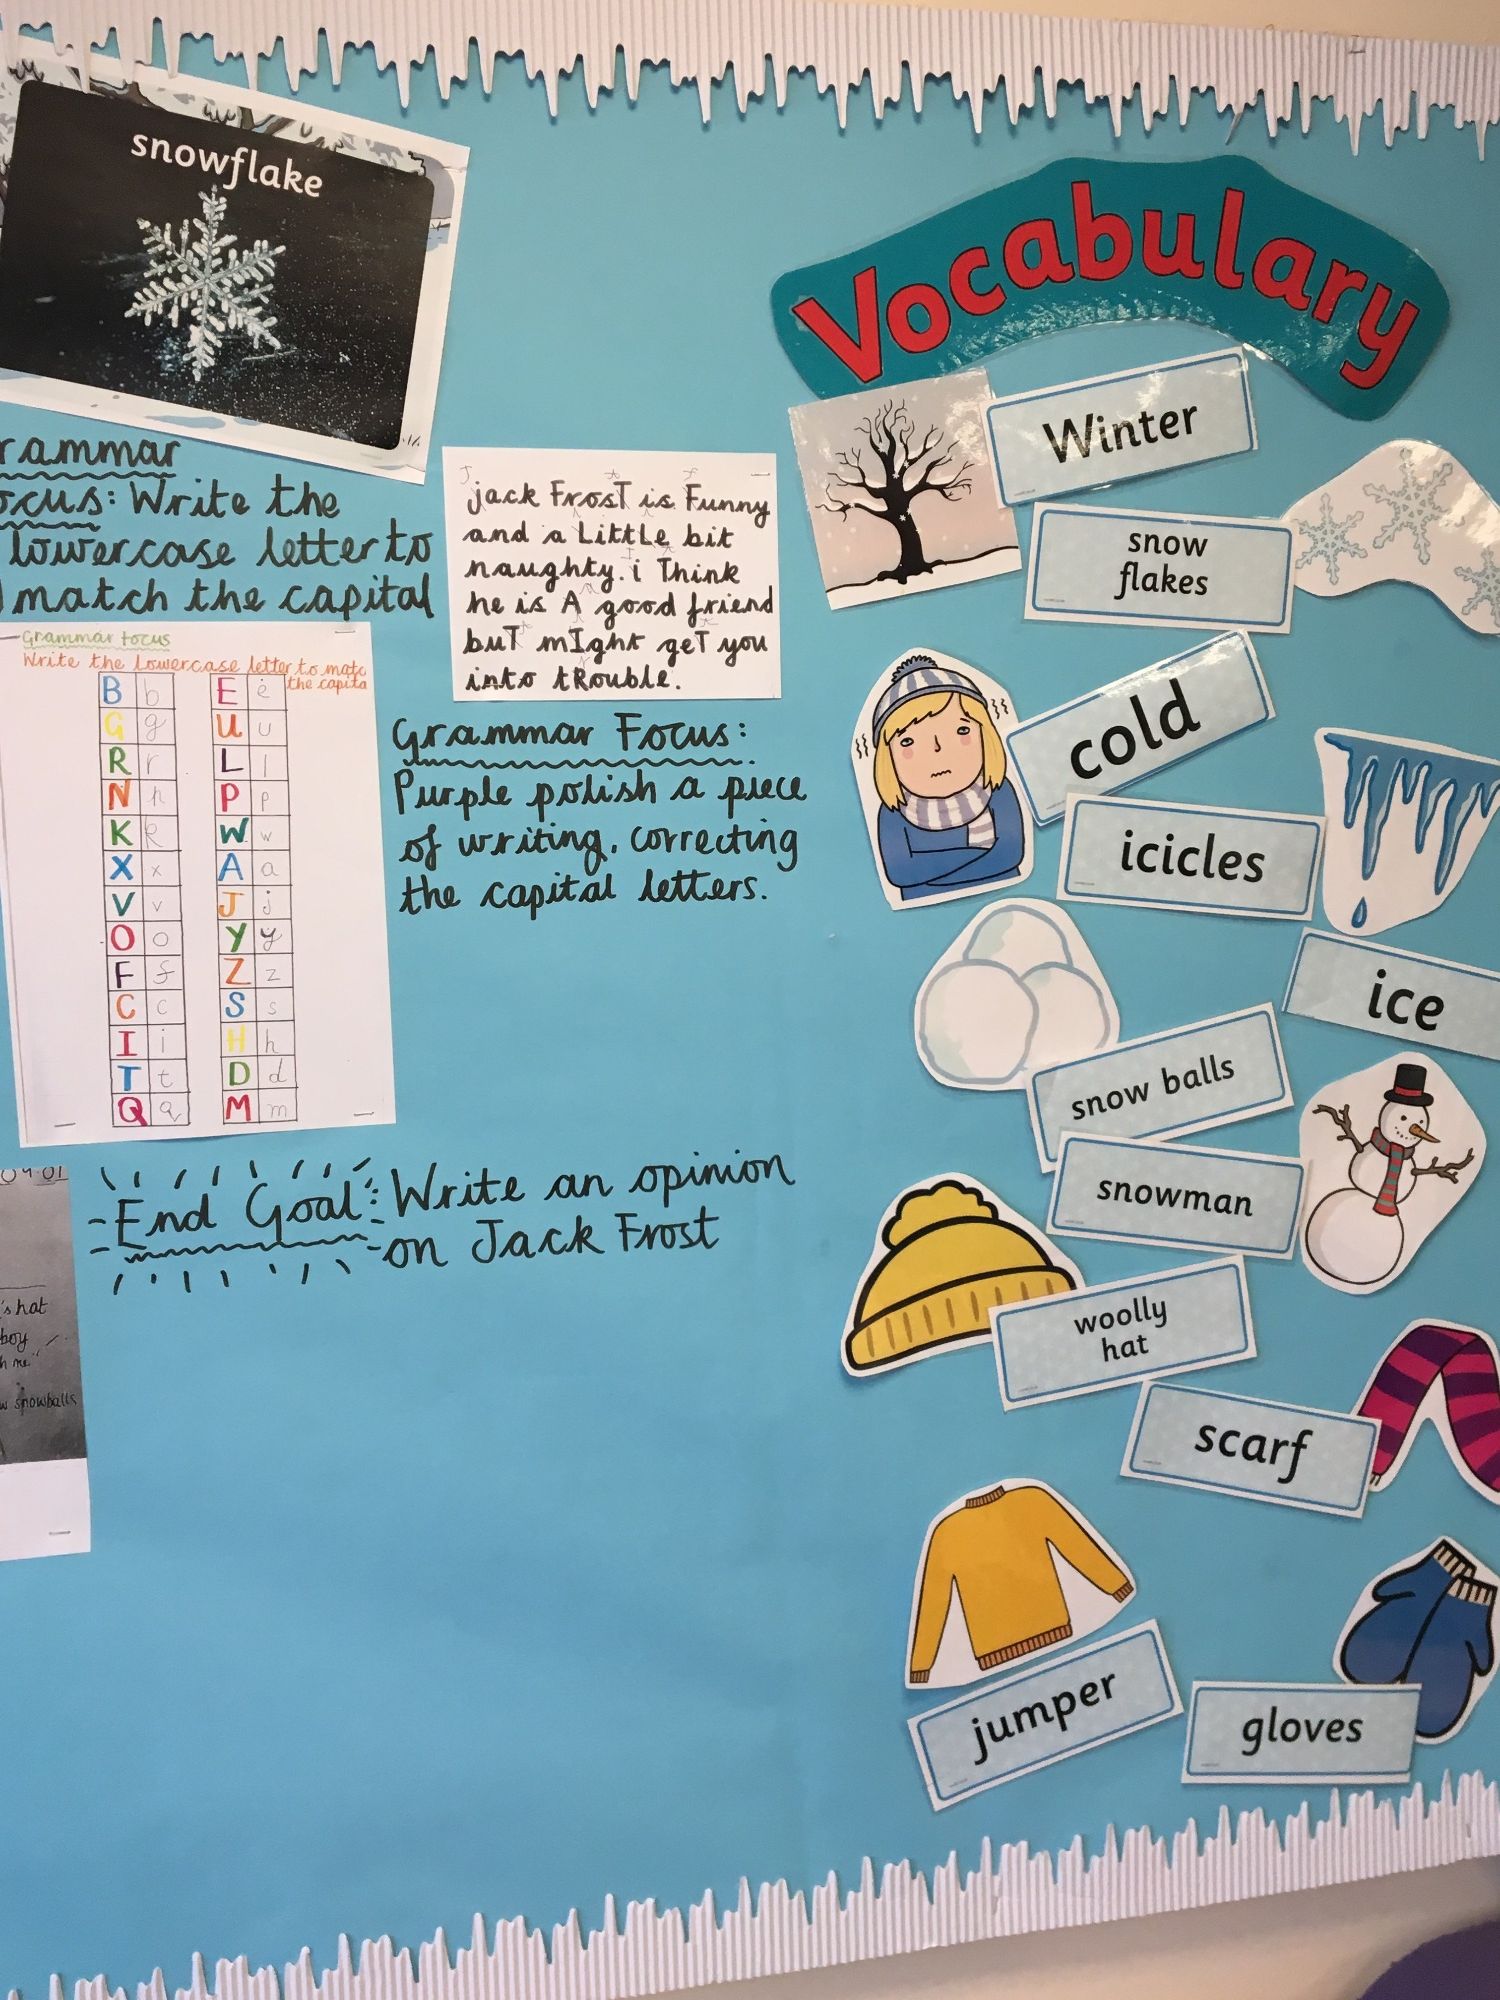 snowflake
rammar
ocus: Write the
lowercase letter to
match the capital
Grammar focus
Write the lowercase letter to matc
the capita
B b E e
G g U u
R r L l
N n P p
K k W w
X x A a
V v J j
O o Y y
F f Z z
C c S s
I i H h
T t D d
Q q M m
jack FrosT is Funny
and a LittLe bit
naughty. i Think
he is A good friend
buT mIght geT you
into tRouble.
Grammar Focus:
Purple polish a piece
of writing, correcting
the capital letters.
04.01
's hat
boy
h me"
w snowballs
End Goal: Write an opinion
on Jack Frost
Vocabulary
Winter
snow
flakes
cold
icicles
ice
snow balls
snowman
woolly
hat
scarf
jumper
gloves